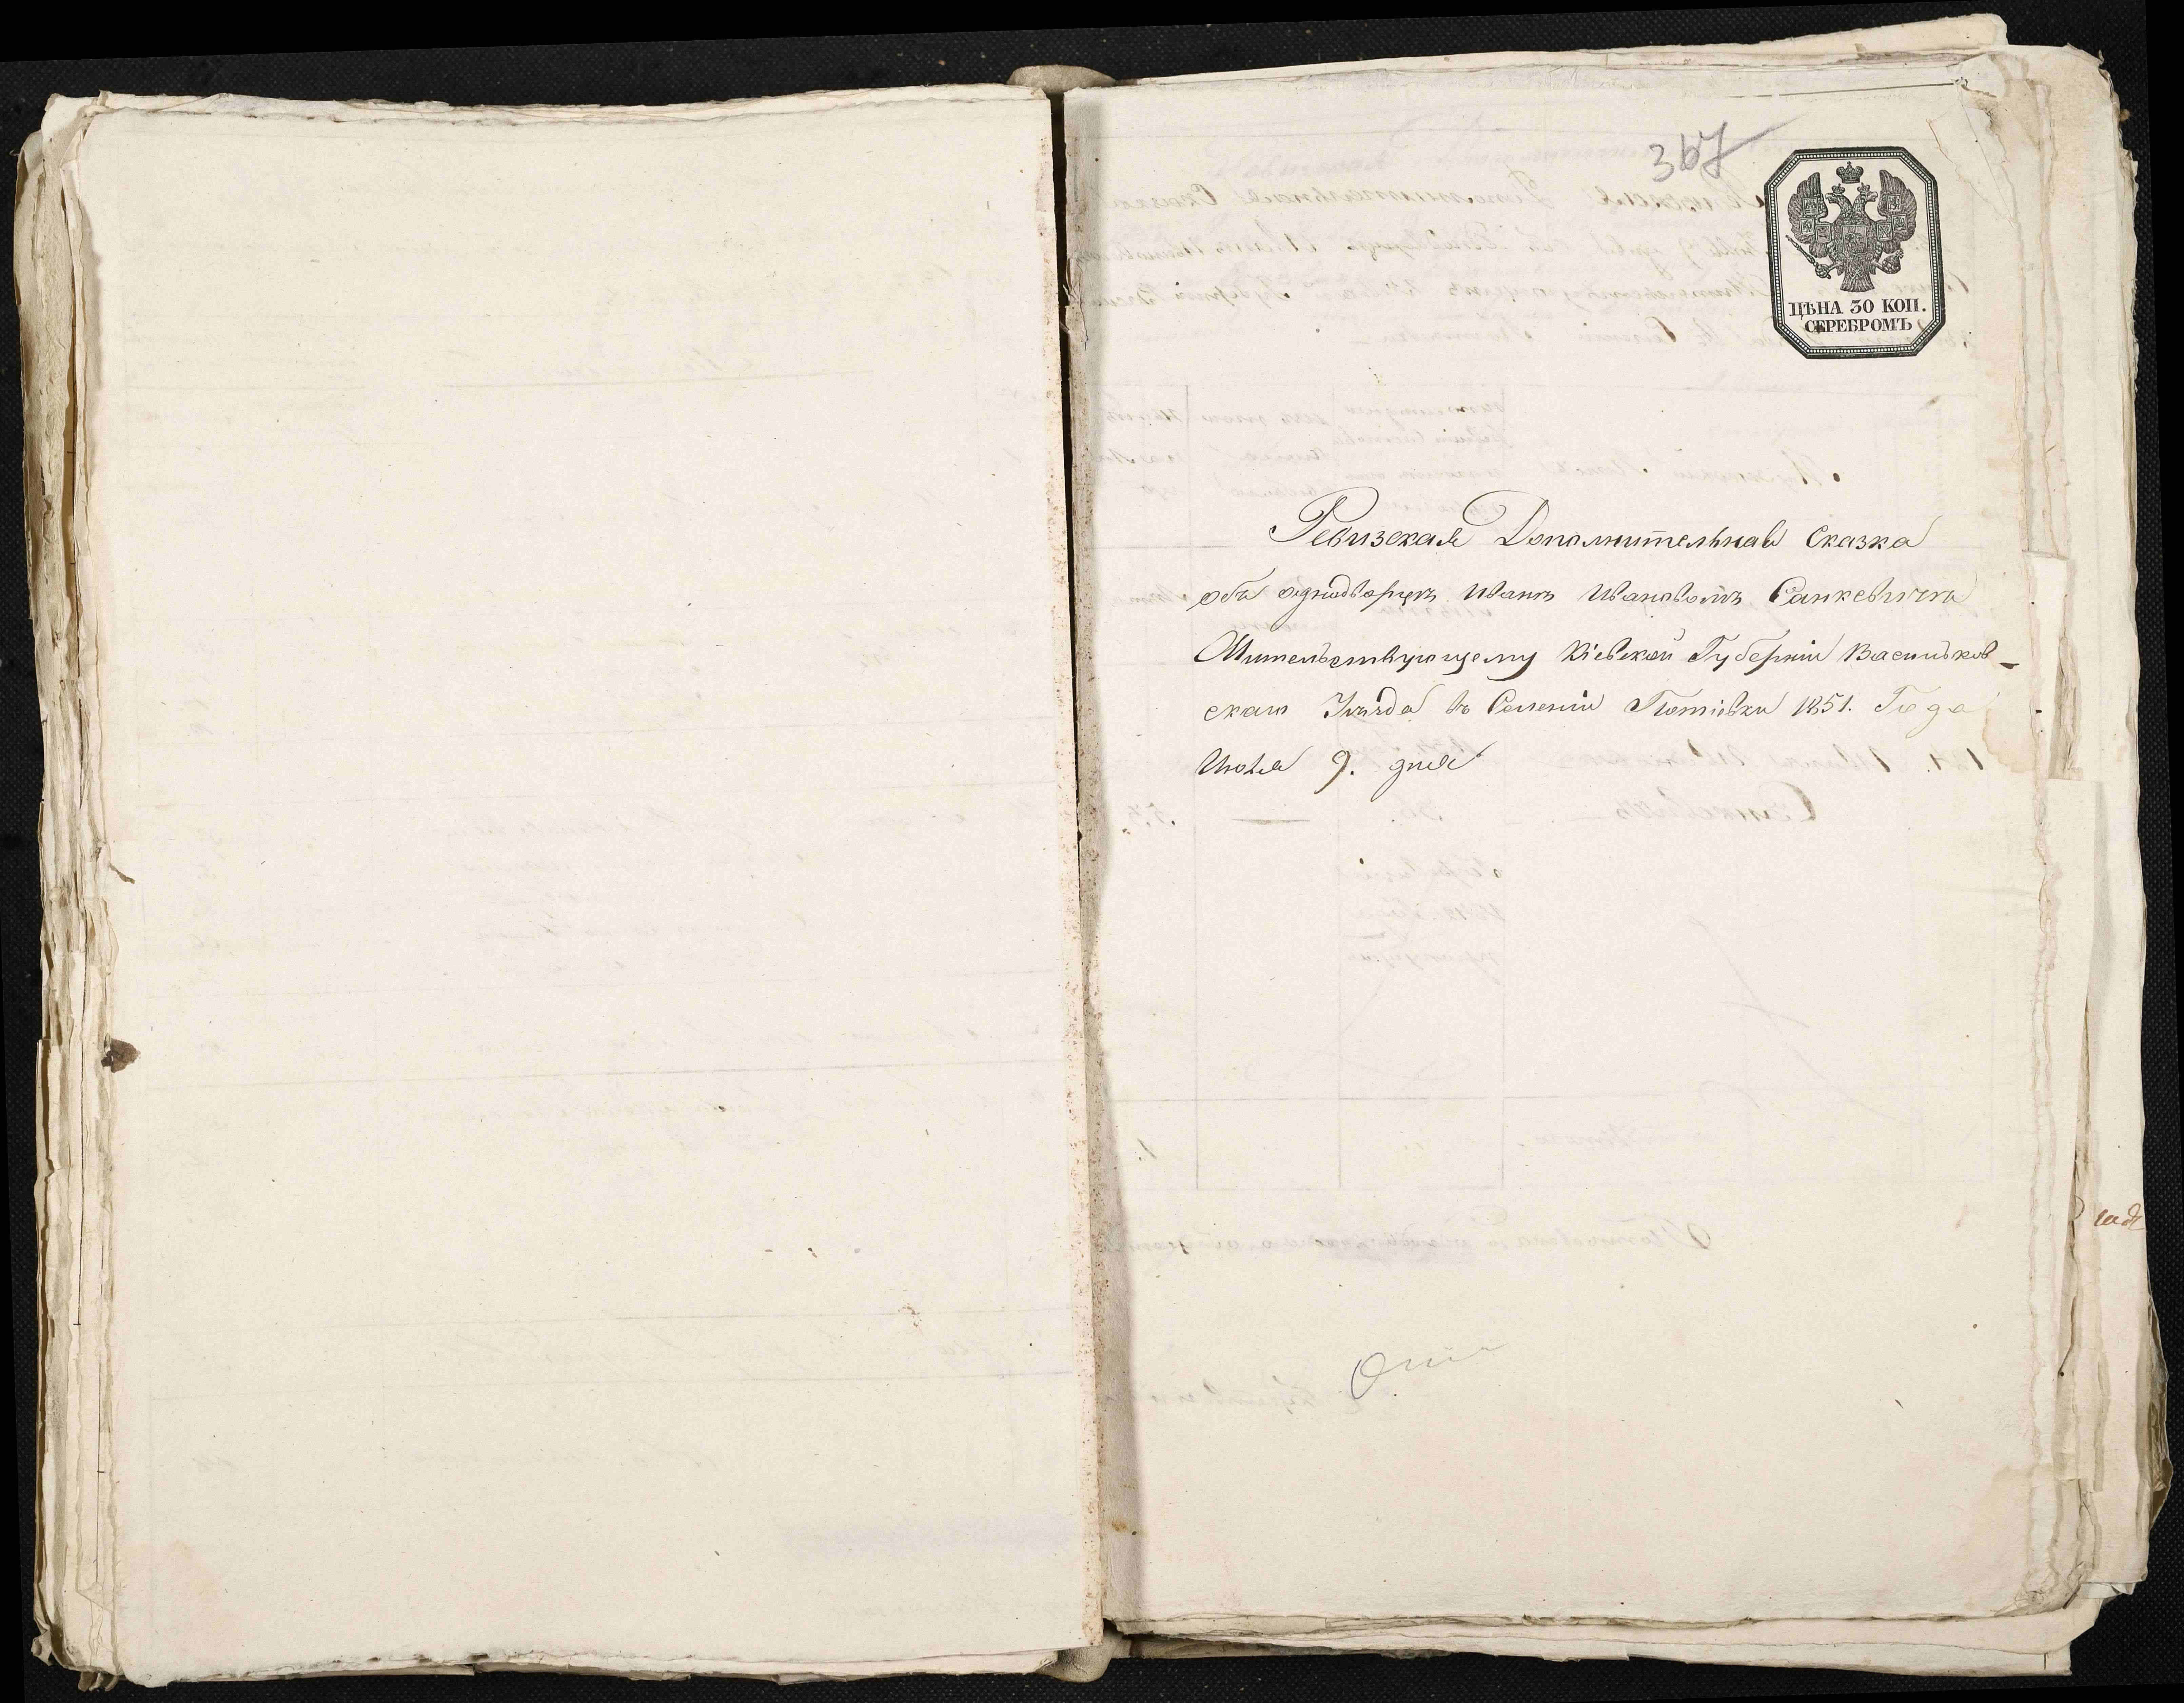 367
ЦѢНА 30 КОП.
СЕРЕБРОМЪ
Ревизская Дополнительная Сказка
объ однодворцѣ Иванѣ Ивановомъ Санкевичи
Жительствующему Кіевской Губерніи Васильков-
скаго Уѣзда въ Селеніи Потіевки 1851. Года
Июля 9. дня